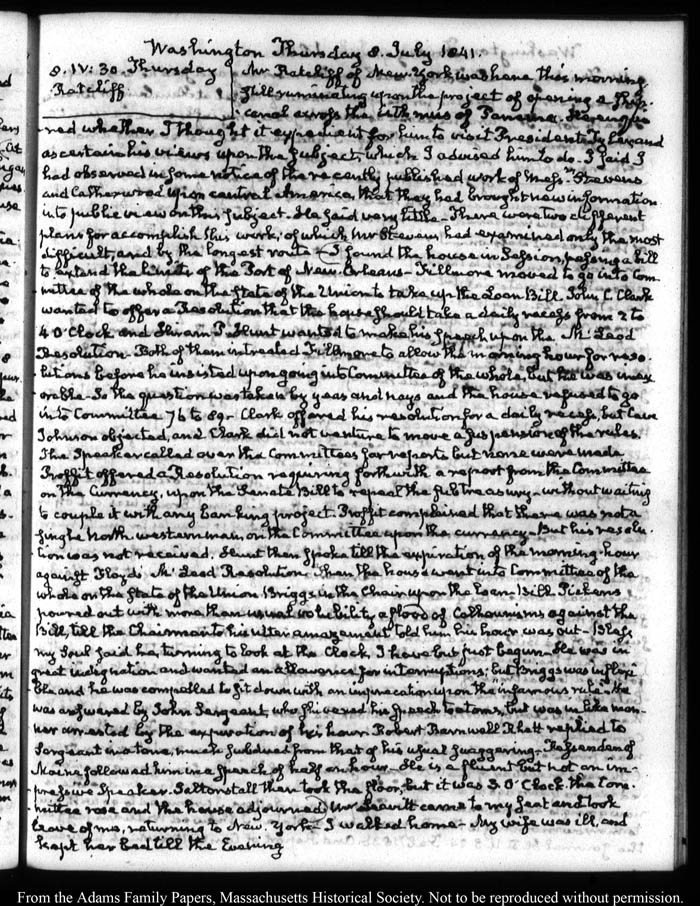 Washington Thursday 8. July 1841.
8. IV: 30. Thursday
Ratcliff
Mr Ratcliff of New-York, was here this morning
still ruminating upon the project of opening a Ship-
canal across the Isthmus of Panama. He enqui-
red whether I thought it expedient for him to visit President Tyler and
ascertain his views upon the subject, which I advised him to do. I said I
had observed in some notice of the recently published work of Mess.rs Stevens
and Catherwood upon central America, that they had brought new information
into public view on this subject. He said very little. There were two different
plans for accomplish this work, of which Mr Stevens had examined only the most
difficult, and by the longest route. I found the house in Session, passing a bill
to extend the limits of the Port of New-Orleans. Fillmore moved to go into Com-
mittee of the whole on the state of the Union to take up the Loan Bill. John C. Clark
wanted to offer a Resolution that the house should take a daily recess from 2 to
4 O'Clock and Hiram P. Hunt wanted to make his Speech upon the McLeod
Resolution. Both of them intreated Fillmore to allow the morning hour for reso-
lutions before he insisted upon going into Committee of the whole, but he was inex-
orable. So the question was taken by yeas and nays and the house refused to go
into Committee 76 to 89. Clark offered his resolution for a daily recess, but Cave
Johnson objected, and Clark did not venture to move a suspension of the rules.
The Speaker called over the Committees for reports but none were made
Proffit offered a Resolution requiring forthwith a report from the Committee
on the Currency, upon the Senate Bill to repeal the Subtreasury, without waiting
to couple it with any banking project. Proffit complained that there was not a
single North western man, on the Committee upon the currency. But his resolu-
tion was not received. Hunt then spoke till the expiration of the morning hour
against Floyd's McLeod Resolution. Then the house went into Committee of the
whole on the State of the Union Briggs in the Chair upon the Loan-Bill. Pickens
poured out with more than usual volubility a flood of Calhounisms against the
Bill, till the Chairman to his utter amazement told him his hour was out. Bless
my Soul said he, turning to look at the Clock, I have but just begun. He was in
great indignation and wanted an allowance for interruptions; but Briggs was inflexi-
ble and he was compelled to sit down with an imprecation upon the "infamous rule." He
was answered by John Sergeant, who shivered his Speech to atoms, but was in like man-
ner arrested by the expiration of his hour. Robert Barnwell Rhett replied to
Sergeant in a tone, much subdued from that of his usual swaggering. Fessenden of
Maine followed him in a Speech of half an hour. He is a fluent but not an im-
pressive Speaker. Saltonstall then took the floor, but it was 3 O'Clock. the Com-
mittee rose and the house adjourned. Mr Leavitt came to my seat and took
leave of me, returning to New-York. I walked home. My wife was ill, and
kept her bed till the Evening
From the Adams Family Papers, Massachusetts Historical Society. Not to be reproduced without permission.